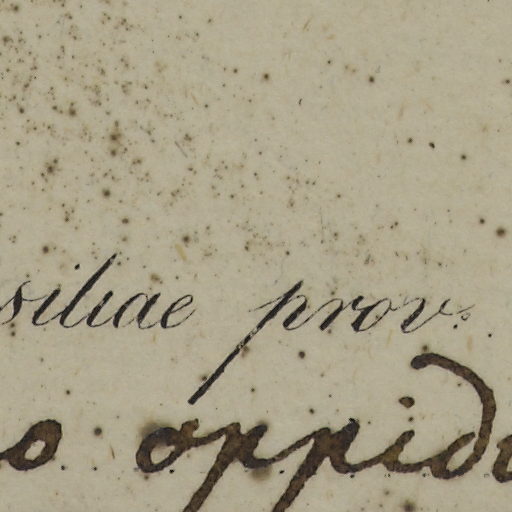 siliae prov.
o oppido